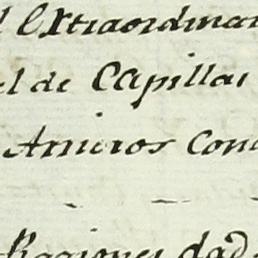 l Extraordinar
el de Capillas
Arrieros Con
Raciones dad